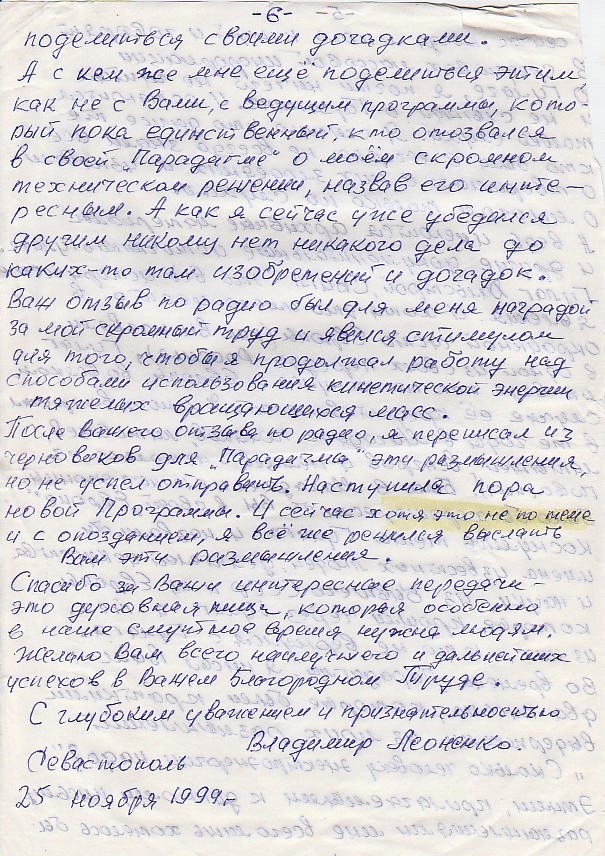 -6-
поделиться своими догадками.
А с кем же мне ещё поделиться этим,
как не с Вами, с ведущим программы, кото-
рый пока единственный, кто отозвался
в своей „Парадигме" о моём скромном
техническом решении, назвав его инте-
ресным. А как я сейчас уже убедился
другим никому нет никакого дела до
каких-то там изобретений и догадок.
Ваш отзыв по радио был для меня наградой
за мой скромный труд и явился стимулом
для того, чтобы я продолжал работу над
способами использования кинетической энергии
тяжелых вращающихся масс.
После Вашего отзыва по радио, я переписал из
черновиков для „Парадигма" эти размышления,
но не успел отправить. Наступила пора
новой Программы. И сейчас хотя это не по теме
и с опозданием, я всё же решился выслать
Вам эти размышления.
Спасибо за Ваши интересные передачи -
это духовная пища, которая особенно
в наше смутное время нужна людям.
Желаю Вам всего наилучшего и дальнейших
успехов в Вашем Благородном Труде.
С глубоким уважением и признательностью
Владимир Леоненко.
Севастополь
25 ноября 1999г.